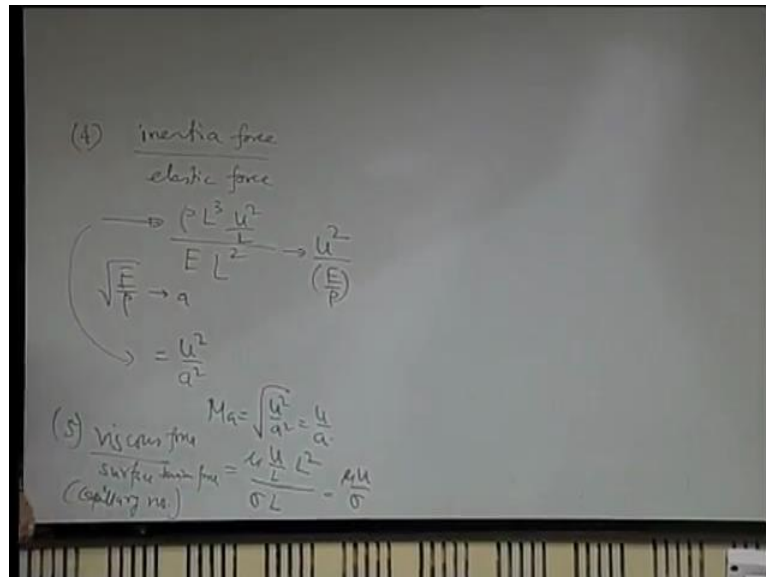 (4) inertia force
elastic force
→ ρ L³ u²/L / E L² → u² / (E/ρ)
√(E/ρ) → a
= u²/a²
Ma = √(u²/a²) = u/a.
(5) viscous force / surface tension force = μ u/L L² / σ L = μu/σ
(Capillary no.)